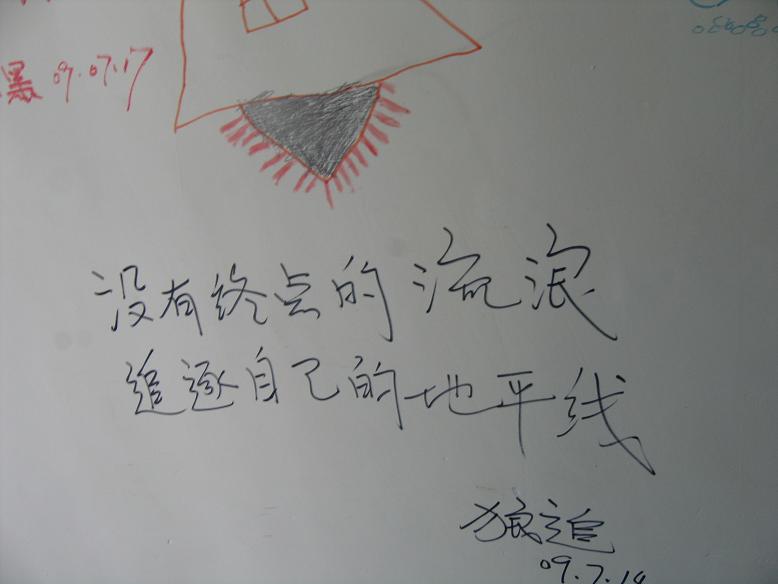 黑 09.07.17
没有终点的流浪
追逐自己的地平线
狼追
09.7.19